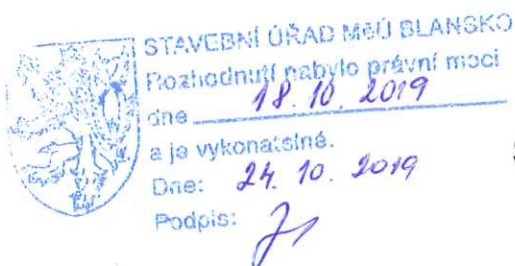 STAVEBNÍ ÚŘAD MěÚ BLANSKO
Rozhodnutí nabylo právní moci
dne 18. 10. 2019
a je vykonatelné.
Dne: 24. 10. 2019
Podpis: